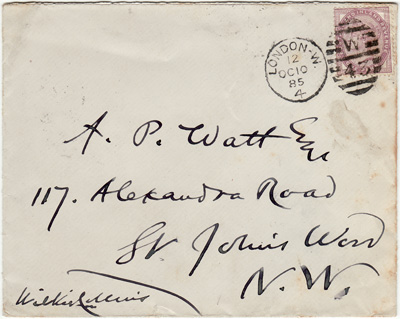 LONDON·W.
12
OC10
85
4
W
43
A. P. Watt Esq
117. Alexandra Road
St John's Wood
N.W.
Wilkie Collins